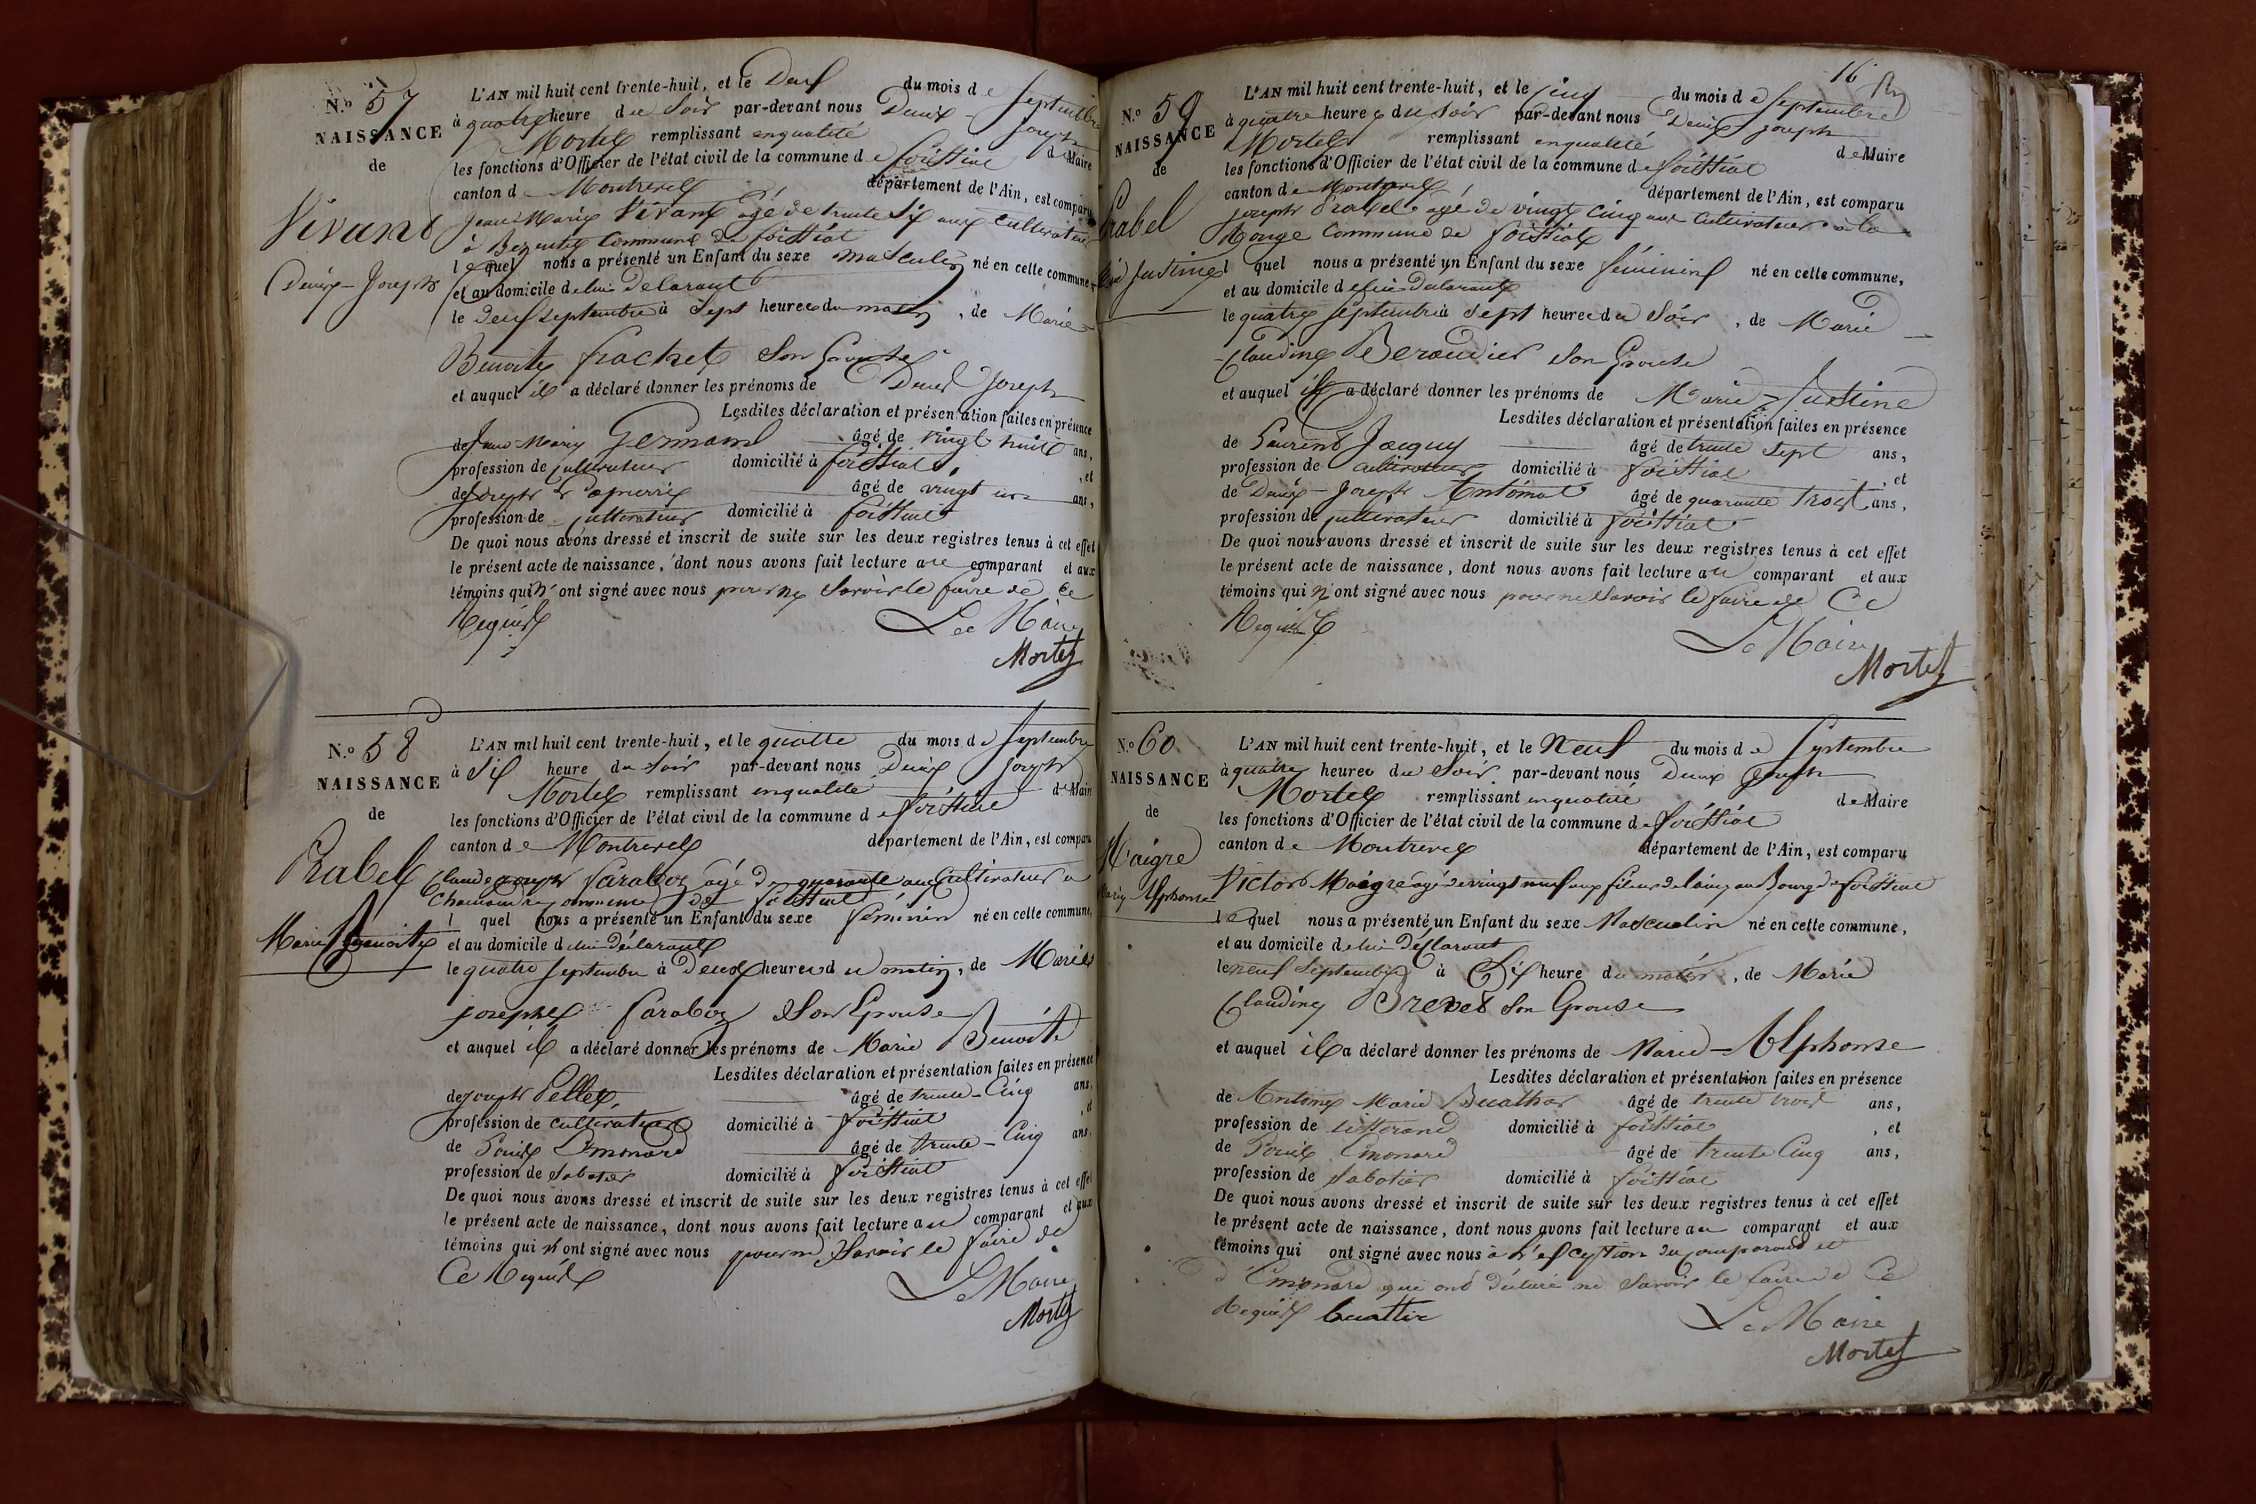 N.o 57
NAISSANCE
de
Vivant
Denix-Joseph
L'AN mil huit cent trente-huit, et le Deux du mois de Septembre
à quatre heure du Soir par-devant nous Denix Joseph
Mortel remplissant enqualité de Maire
les fonctions d'Officier de l'état civil de la commune de foissiat
canton de Montrevel département de l'Ain, est comparu
Jean-Marie Vivant agé de trente Six ans cultivateur
à commune de foissiat
lequel nous a présenté un Enfant du sexe masculin né en cette commune,
et au domicile de lui Délarant
le deux septembre à sept heures du matin, de Marie
Benoite frachet Son Epouse
et auquel il a déclaré donner les prénoms de Denix Joseph
Lesdites déclaration et présentation faites en présence
de Jean-Marie Germain âgé de vingt huit ans,
profession de cultivateur domicilié à foissiat, et
de Joseph âgé de vingt ans,
profession de cultivateur domicilié à foissiat
De quoi nous avons dressé et inscrit de suite sur les deux registres tenus à cet effet
le présent acte de naissance, dont nous avons fait lecture au comparant et aux
témoins qui n'ont signé avec nous pour ne Savoir le faire de ce
Requis
Le Maire
Mortel
N.o 58
NAISSANCE
de
Rabel
Marie Benoite
L'AN mil huit cent trente-huit, et le quatre du mois de Septembre
à Six heure du Soir par-devant nous Denix Joseph
Mortel remplissant enqualité de Maire
les fonctions d'Officier de l'état civil de la commune de foissiat
canton de Montrevel département de l'Ain, est comparu
Claude Joseph faraboz agé de quarante ans Cultivateur a
commune de foissiat
l quel nous a présenté un Enfant du sexe féminin né en cette commune,
et au domicile de lui Déclarant
le quatre septembre à Deux heures du matin, de Marie
josephe faraboz Son Epouse
et auquel il a déclaré donner les prénoms de Marie Benoite
Lesdites déclaration et présentation faites en présence
de joseph Pellet âgé de trente-Cinq ans,
profession de cultivateur domicilié à foissiat, et
de Emonard âgé de trente-Cinq ans,
profession de Sabotier domicilié à foissiat
De quoi nous avons dressé et inscrit de suite sur les deux registres tenus à cet effet
le présent acte de naissance, dont nous avons fait lecture au comparant et aux
témoins qui n'ont signé avec nous pour ne Savoir le faire de
Ce Requis
Le Maire
Mortel
16
N.o 59
NAISSANCE
de
Rabel
Marie Justine
L'AN mil huit cent trente-huit, et le Cinq du mois de Septembre
à quatre heures du soir par-devant nous Denix Joseph
Mortel remplissant enqualité de Maire
les fonctions d'Officier de l'état civil de la commune de foissiat
canton de Montrevel département de l'Ain, est comparu
joseph Rabel agé de vingt cinq ans cultivateur à la
Rouge Commune de foissiat
l quel nous a présenté un Enfant du sexe féminin né en cette commune,
et au domicile de lui Déclarant
le quatre septembre à sept heures du Soir, de Marie
Claudine Beraudier son Epouse
et auquel il a déclaré donner les prénoms de Marie-Justine
Lesdites déclaration et présentation faites en présence
de Laurent Jacquy âgé de trente sept ans,
profession de cultivateur domicilié à foissiat, et
de Denix-Joseph Antomat âgé de quarante trois ans,
profession de cultivateur domicilié à foissiat
De quoi nous avons dressé et inscrit de suite sur les deux registres tenus à cet effet
le présent acte de naissance, dont nous avons fait lecture au comparant et aux
témoins qui n'ont signé avec nous pour ne savoir le faire de Ce
Requis
Le Maire
Mortel
N.o 60
NAISSANCE
de
Maigre
Marie Alphonse
L'AN mil huit cent trente-huit, et le Neuf du mois de Septembre
à quatre heures du Soir par-devant nous Denix Joseph
Mortel remplissant enqualité de Maire
les fonctions d'Officier de l'état civil de la commune de foissiat
canton de Montrevel département de l'Ain, est comparu
Victor Maigre agé de vingt neuf ans fileur de laine au Bourg de foissiat
lequel nous a présenté un Enfant du sexe Masculin né en cette commune,
et au domicile de lui Déclarant
le neuf Septembre à Six heure du matin, de Marie
Claudine Brevet Son Epouse
et auquel il a déclaré donner les prénoms de Marie-Alphonse
Lesdites déclaration et présentation faites en présence
de Antoine Marie Buathier âgé de trente trois ans,
profession de tisserand domicilié à foissiat, et
de Emonard âgé de trente Cinq ans,
profession de Sabotier domicilié à foissiat
De quoi nous avons dressé et inscrit de suite sur les deux registres tenus à cet effet
le présent acte de naissance, dont nous avons fait lecture au comparant et aux
témoins qui ont signé avec nous à l'exception du comparant et
d'Emonard qui ont déclaré ne Savoir le faire de Ce
Requis Buathier
Le Maire
Mortel